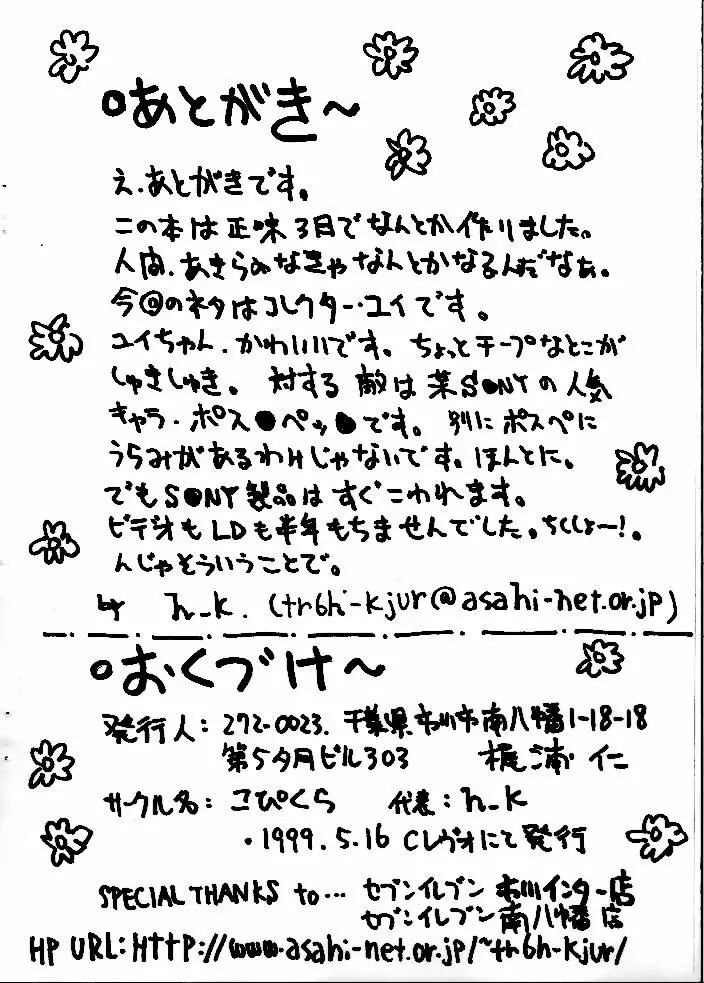 ○あとがき〜
え、あとがきです。
この本は正味3日でなんとか作りました。
人間、あきらめなきゃなんとかなるんだなぁ。
今回のネタはコレクター・ユイです。
ユイちゃん、かわいいです。ちょっとチープなとこが
しゅきしゅき。 対する敵は某S●NYの人気
キャラ・ポス●ペッ●です。 別にポスペに
うらみがあるわけじゃないです。ほんとに。
でもS●NY製品はすぐこわれます。
ビデオもLDも半年もちませんでした。ちくしょー!。
んじゃそういうことで。
by h_k. (tr6h-kjur@asahi-net.or.jp)
○おくづけ〜
発行人: 272-0023. 千葉県市川市南八幡1-18-18
第5夕月ビル303 梶浦 仁
サークル名: こぴくら 代表: h_k
・1999.5.16 Cレヴォにて発行
SPECIAL THANKS to… セブンイレブン 市川インター店
セブンイレブン 南八幡店
HP URL: HttP://www.asahi-net.or.jp/~tr6h-kjur/